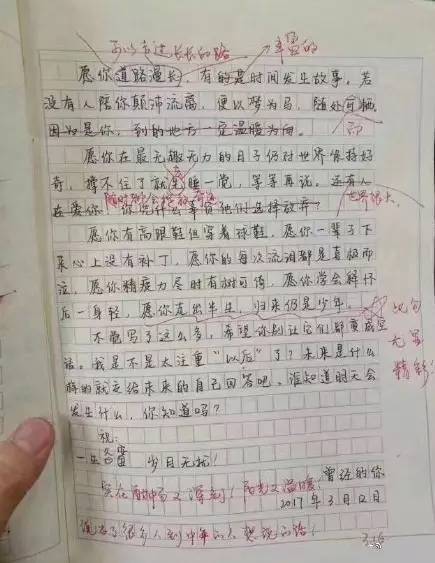 可以走过长长的路 丰盈的
愿你道路漫长,有的是时间发生故事。若
没有人陪你颠沛流离,便以梦为马,随处可栖。
因为是你,到的地方一定温暖为向。 即
愿你在最无趣无力的日子仍对世界保持好
奇,撑不住了就先睡一觉,等等再说。还有人
在爱你,你凭什么辜负他们选择放弃? 世界很大。
愿你有高跟鞋但穿着球鞋,愿你一辈子下
来心上没有补丁,愿你的每次流泪都是喜极而
泣,愿你精疲力尽时有树可倚,愿你学会释怀
后一身轻,愿你走出半生,归来仍是少年。 此句
不能写了这么多,希望你别让它们都变成空 尤显
话。我是不是太注重“以后”了?未来是什么 精彩!
样的就交给未来的自己回答吧。谁知道明天会
发生什么,你知道吗?
祝:
一生努力 岁月无扰!
实在耐人又深刻!阳光又温暖! 曾经的你
2017年3月12日
说出了很多人到中年的人想说的话! 3.16